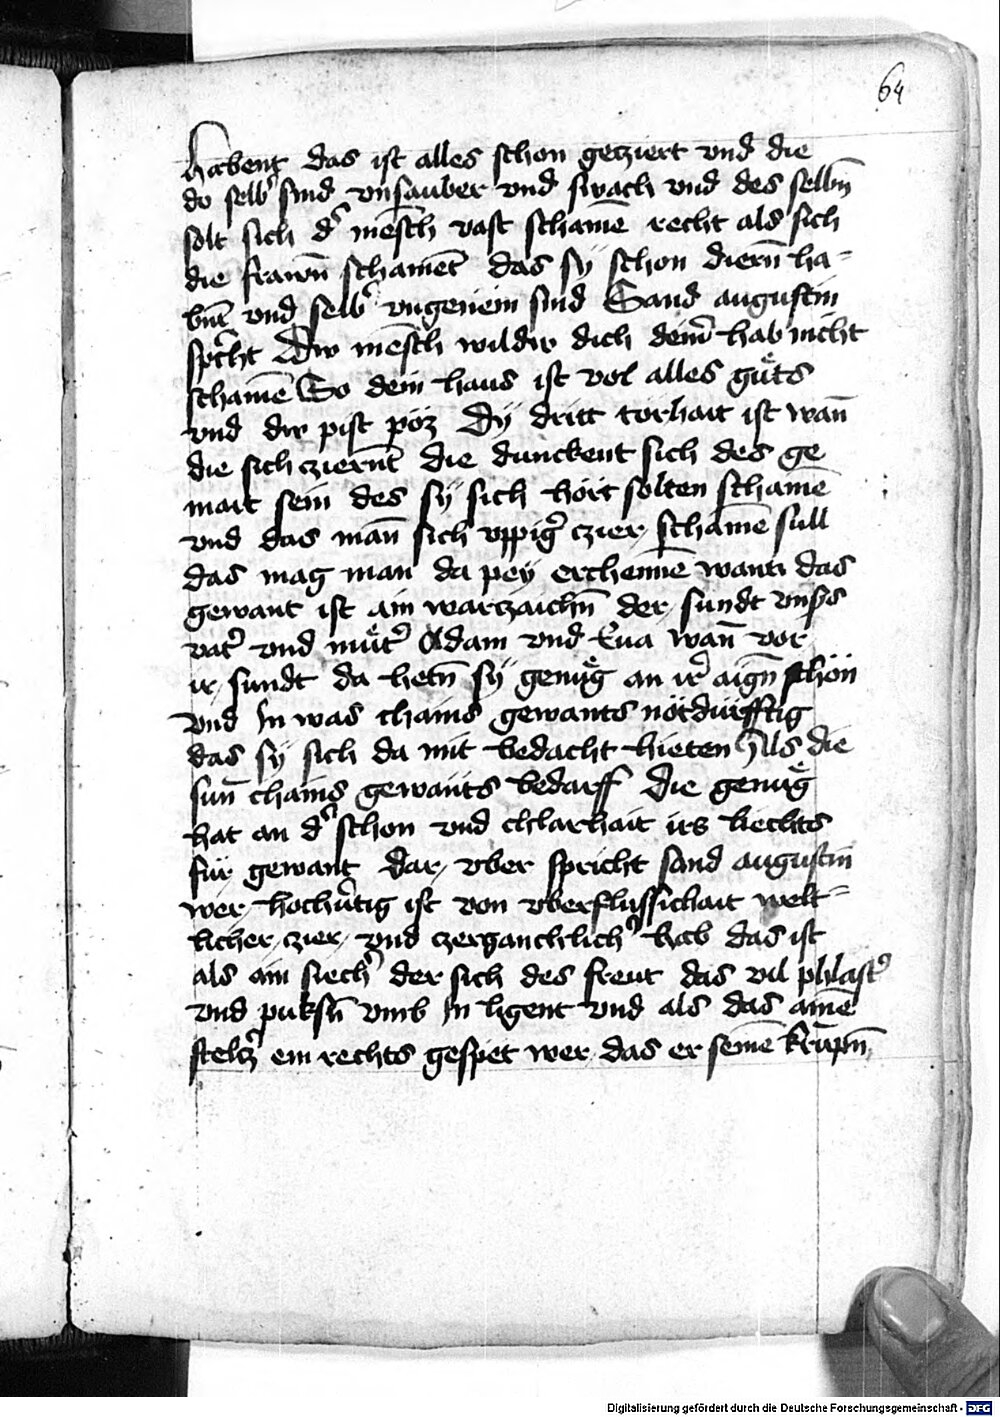 64
habent das ist alles schon getziert vnd die
do selbs sind vnsauber vnd swach vnd des selbñ
solt sich d' mēsch vast schamē recht als sich
die frawñ schament das sy schon diernñ ha-
bnt vnd selbs vngenem sind Sand augustin
spricht Dw mēsch wilder dich denn hab nicht
schamē So dein haus ist vol alles gůts
vnd dw pist pöz Dÿ dritt torhait ist wañ
die sich cziernt die dunckent sich des ge
mait sein des sÿ sich hört solten schamē
vnd das mañ sich vppig' czier schamē sull
das mag man da peÿ erchennē wann das
gewant ist ain warzaichñ der sundt vns's
vat' vnd můt' Adam vnd Eua wañ vor
ir sundt da hetñ sÿ genůg an ir' aigñ schön
vnd In was chains gewants nötdürfftig
das sÿ sich da mit bedacht hieten Als die
suñ chains gewants bedarff Die genůg
hat an d' schon vnd chlarhait irs liechts
für gewant Dar vber spricht sand augustin
wer hochūtig ist von vberflussichait welt-
licher czier vnd czerganchlich' hab das ist
als ain siech' der sich des freut das vil phlast'
vnd puksñ vmb In ligent vnd als das ainē
stelcz' ein rechts gespet wer das er seinē krūpñ
Digitalisierung gefördert durch die Deutsche Forschungsgemeinschaft - DFG